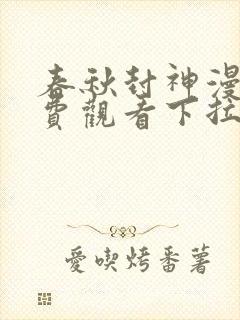 春秋封神漫
費觀看下拉
愛喫烤番薯